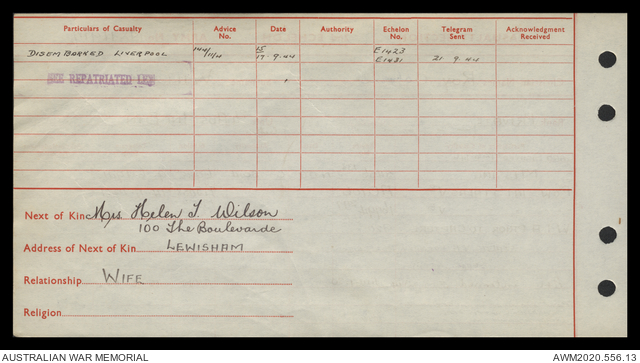 Particulars of Casualty Advice No. Date Authority Echelon No. Telegram Sent Acknowledgment Received
DISEMBARKED LIVERPOOL 17.9.44 E1423
E1431 21.9.44
SEE REPATRIATED
Next of Kin Mrs Helen T. Wilson
100 The Boulevarde
Address of Next of Kin LEWISHAM
Relationship WIFE
Religion
AUSTRALIAN WAR MEMORIAL AWM2020.556.13